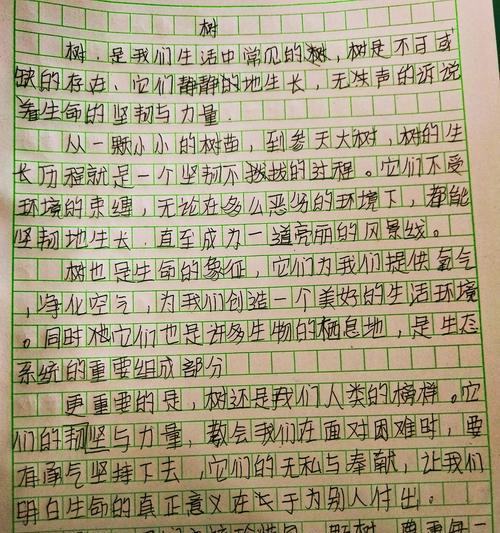 树
树，是我们生活中常见的树，树是不可或
缺的存在、它们静静的地生长，无声的诉说
着生命的坚韧与力量．
从一颗小小的树苗，到参天大树，树的生
长历程就是一个坚韧不拔的过程。它们不受
环境的束缚，无论在多么恶劣的环境下，都能
坚韧地生长．直至成为一道亮丽的风景线。
树也是生命的象征，它们为我们提供氧气
，净化空气，为我们创造一个美好的生活环境
。同时它们也是许多生物的栖息地，是生态
系统的重要组成部分
更重要的是，树还是我们人类的榜样。它
们的韧坚与力量，教会我们在面对困难时，要
有勇气坚持下去，它们的无私与奉献，让我们
明白生命的真正意义在于为别人付出。